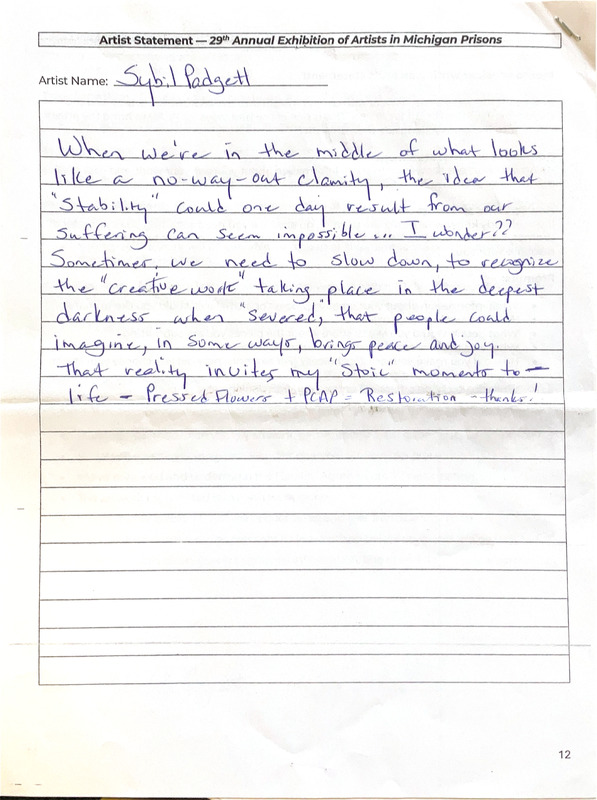 Artist Statement — 29th Annual Exhibition of Artists in Michigan Prisons
Artist Name: Sybil Padgett
When we're in the middle of what looks
like a no-way-out clamity, the idea that
"Stability" could one day result from our
suffering can seem impossible... I wonder??
Sometimes, we need to slow down, to recognize
the "creative work" taking place in the deepest
darkness when "severed," that people could
imagine, in some ways, brings peace and joy.
That reality invites my "Stoic" moments to—
life - Pressed Flowers + PCAP = Restoration - thanks!
12